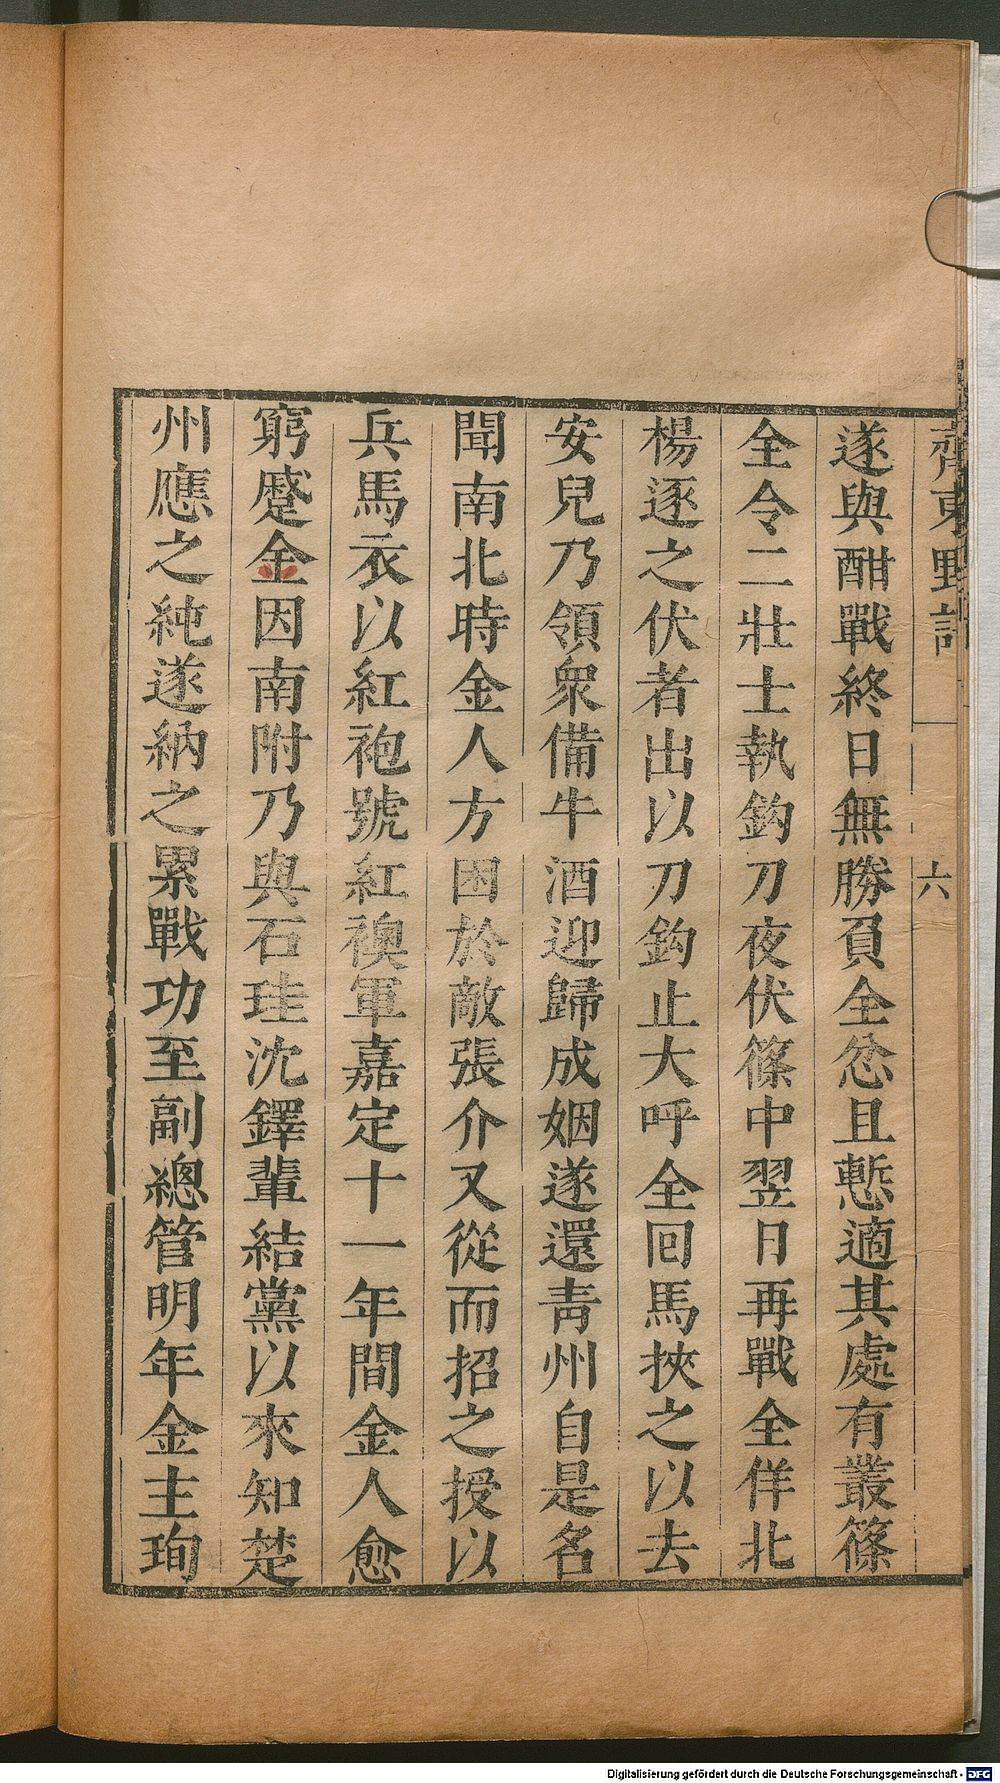 齊東野語
六
遂與酣戰終日無勝負全忿且慙適其處有叢篠
全令二壯士執鈎刀夜伏篠中翌日再戰全佯北
楊逐之伏者出以刀鈎止大呼全回馬挾之以去
安兒乃領衆備牛酒迎歸成姻遂還靑州自是名
聞南北時金人方困於敵張介又從而招之授以
兵馬衣以紅袍號紅襖軍嘉定十一年間金人愈
窮蹙全因南附乃與石珪沈鐸輩結黨以來知楚
州應之純遂納之累戰功至副總管明年金主珣
Digitalisierung gefördert durch die Deutsche Forschungsgemeinschaft - DFG